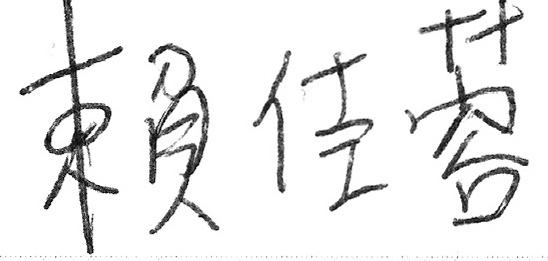 賴佳蓉